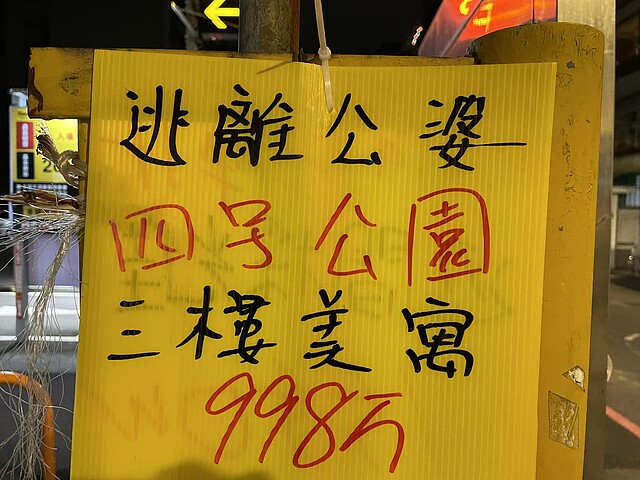 逃離公婆
四号公園
三樓美寓
998万